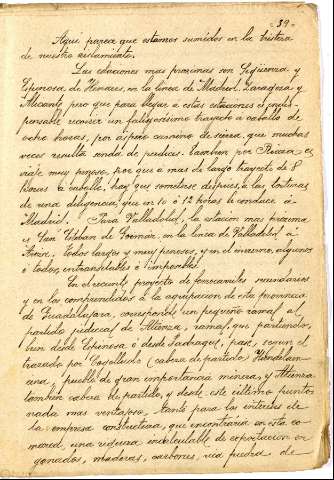 39.
Aquí parece que estamos sumidos en la tristeza
de nuestro aislamiento.
Las estaciones mas proximas son Sigüenza y
Espinosa de Henares, en la linea de Madrid, Zaragoza y
Alicante, pero que para llegar a estas estaciones es indis-
pensable recorrer un fatigosisimo trayecto a caballo de
ocho horas, por aspero camino de sierra, que muchas
veces resulta senda de perdices. Tambien por Riaza es
viaje muy penoso, por que a mas de largo trayecto de 8
horas a caballo, hay que someterse despues, a las torturas
de una diligencia, que en 10 ó 12 horas le conduce a
Madrid. Para Valladolid, la estacion mas proxima
es San Esteban de Gormáz, en la linea de Valladolid á
Ariza, todos largos y muy penosos, y en el invierno, algunos
ó todos intransitables é imposibles.
En el reciente proyecto de ferrocarriles secundarios
y en los comprendidos a la agrupacion de esta provincia
de Guadalajara, corresponde un pequeño ramal al
partido judicial de Atienza, ramal, que partiendo,
bien desde Espinosa ó desde Jadraque, pase, segun el
trazado por Cogolludo (cabeza de partido) Hiendelaen-
cina, pueblo de gran importancia minera, y Atienza
tambien cabeza de partido, y desde este ultimo punto
nada mas ventajoso, tanto para los intereses de
la empresa constructora, que encontraria en esta co-
marca, una riqueza incalculable de exportacion en
ganados, maderas, carbones, rica piedra de